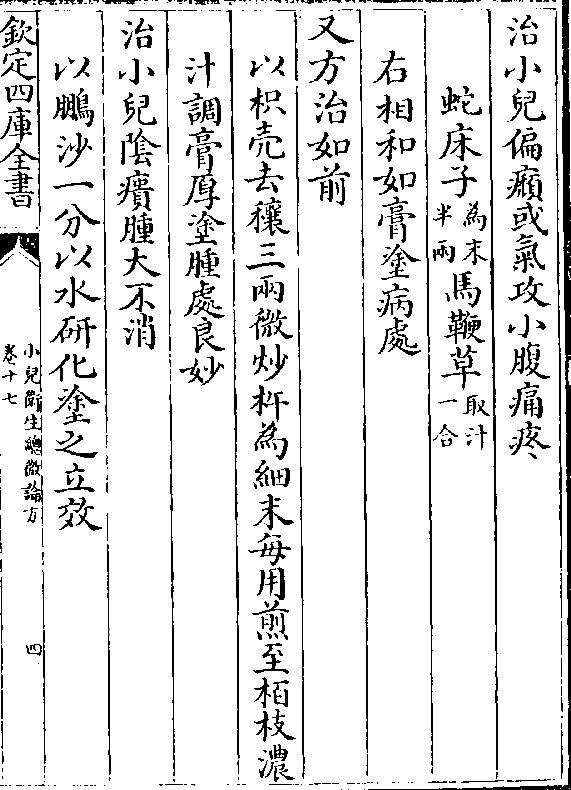 治小兒偏㿗或氣攻小腹痛疼
蛇床子為末半兩馬鞭草取汁一合
右相和如膏塗病處
又方治如前
以枳壳去穰三兩微炒杵為細末每用煎至栢枝濃
汁調膏厚塗腫處良妙
治小兒陰㿉腫大不消
以鵬沙一分以水研化塗之立效
欽定四庫全書
小兒衛生總微論方
卷十七
四